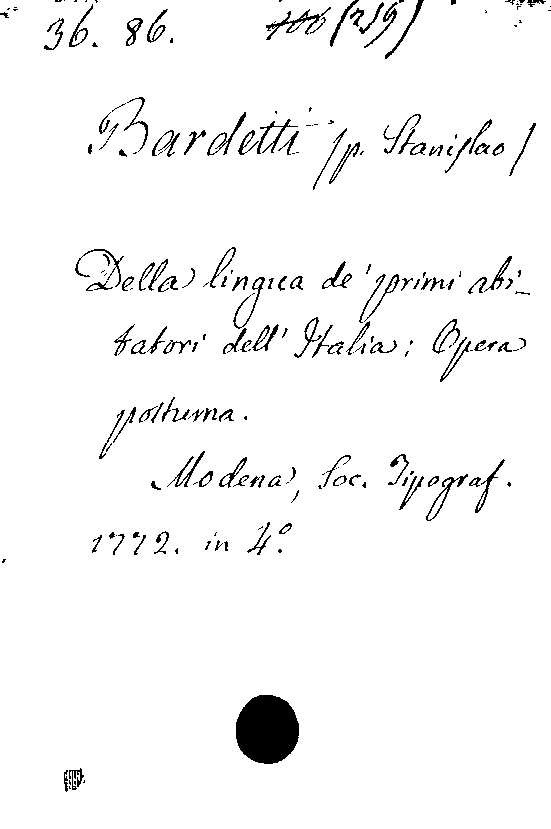 36. 86. 106 (259)
Bardetti (p. Stanislao)
Della lingua de' primi abi-
tatori dell' Italia: Opera
postuma.
Modena, Soc. Tipograf.
1772. in 4.º